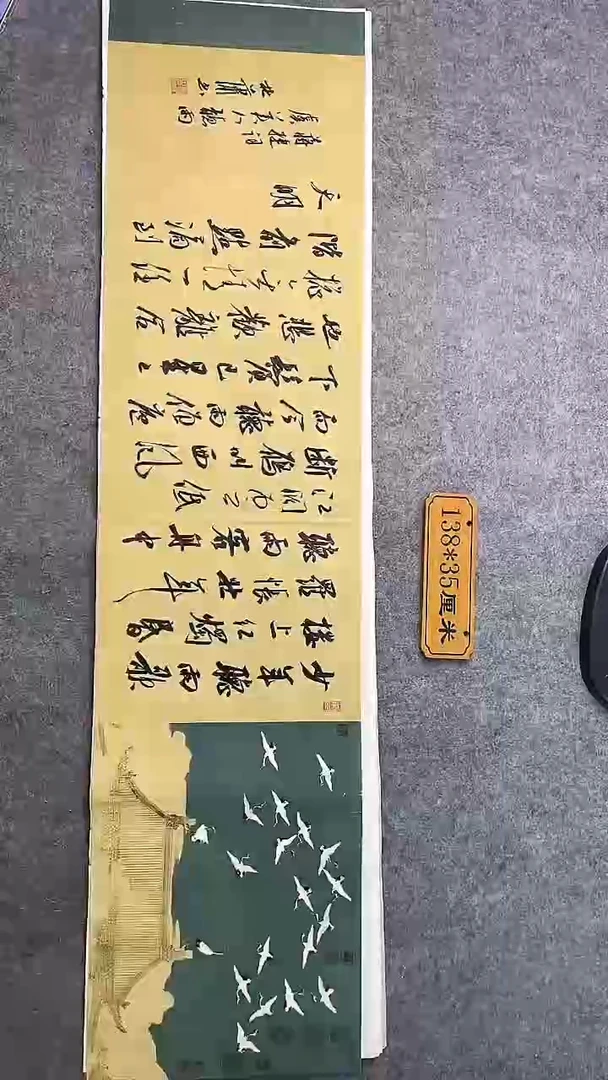 少年聽雨歌
樓上紅燭昏
羅帳壯年
聽雨客舟中
江闊雲低
斷雁叫西風
而今聽雨僧廬
下鬢已星星
也悲歡離合
總無情一任
階前點滴到
天明
蔣捷詞
虞美人聽雨
138*35厘米